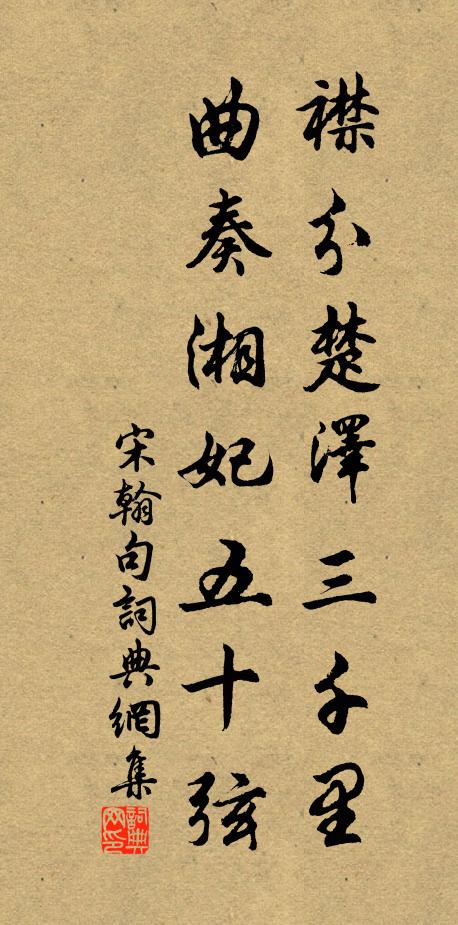 襟分楚澤三千里
曲奏湘妃五十弦
宋翰句詞典網集
詞典网印